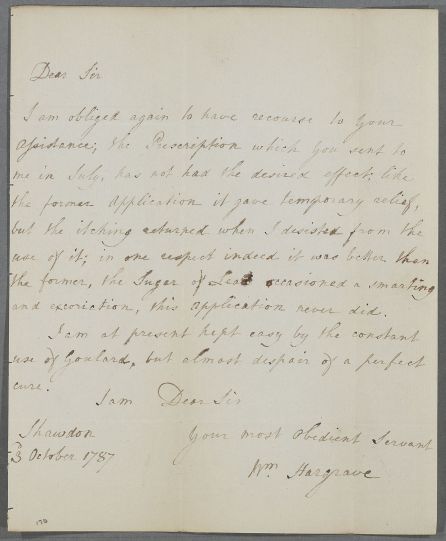 Dear Sir
I am obliged again to have recourse to your
assistance; the Prescription which you sent to
me in July, has not had the desired effect; like
the former Application it gave temporary relief,
but the itching returned when I desisted from the
use of it; in one respect indeed it was better than
the former, the Sugar of Lead occasioned a smarting
and excoriction, this application never did.
I am at present kept easy by the constant
use of Goulard, but almost despair of a perfect
cure.
I am Dear Sir
Your most obedient Servant
Wm. Hargrave
Shawdon
3 October 1787